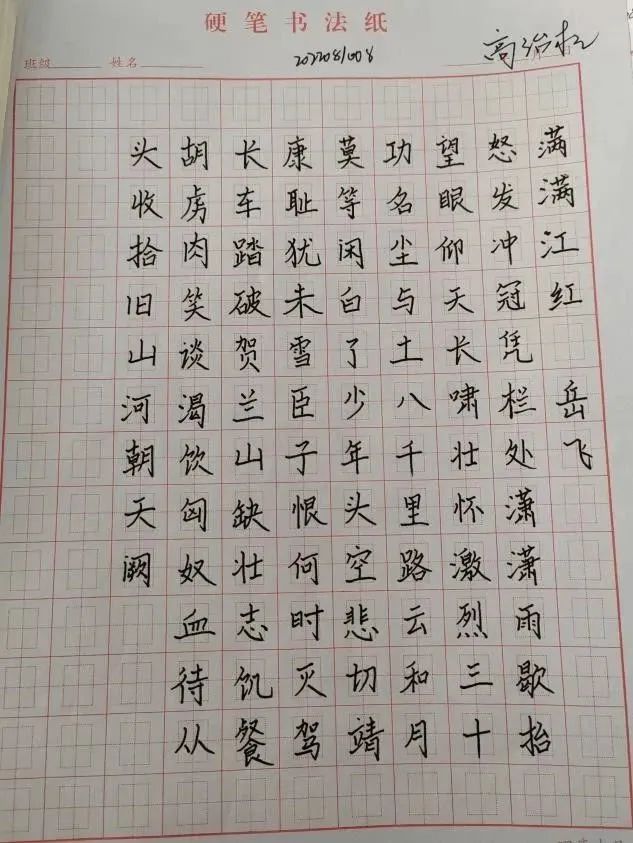 硬笔书法纸
班级 姓名 2022081008
满满江红 岳飞
怒发冲冠凭栏处潇潇雨歇抬
望眼仰天长啸壮怀激烈三十
功名尘与土八千里路云和月
莫等闲白了少年头空悲切靖
康耻犹未雪臣子恨何时灭驾
长车踏破贺兰山缺壮志饥餐
胡虏肉笑谈渴饮匈奴血待从
头收拾旧山河朝天阙